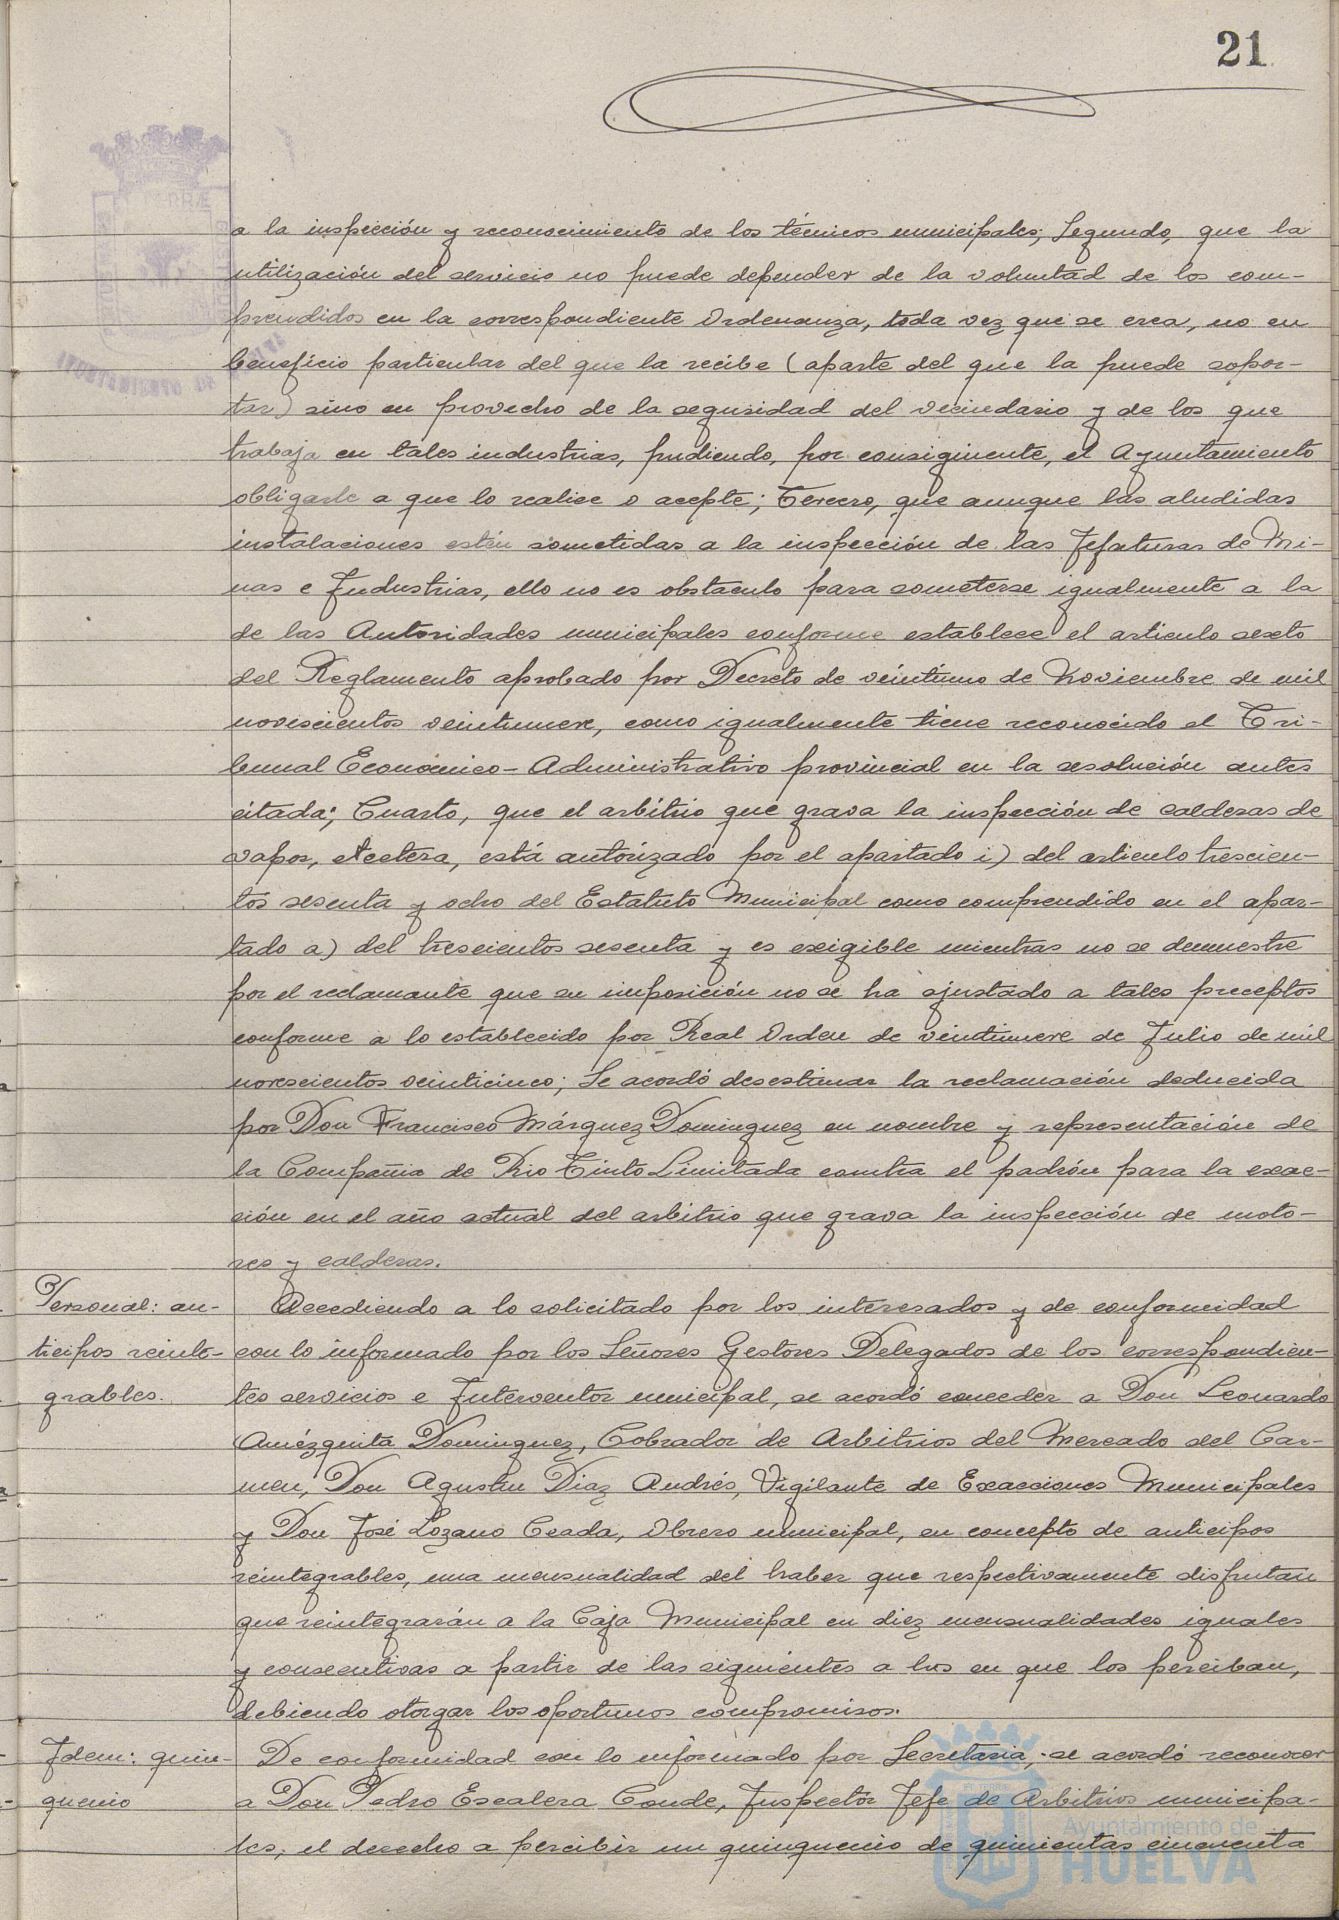 21
a la inspección y reconocimiento de los técnicos municipales; Segundo, que la
utilización del servicio no puede depender de la voluntad de los com-
prendidos en la correspondiente Ordenanza, toda vez que se crea, no en
beneficio particular del que la recibe (aparte del que la puede sopor-
tar) sino en provecho de la seguridad del vecindario y de los que
trabaja en tales industrias, pudiendo, por consiguiente, el Ayuntamiento
obligarle a que lo realice o acepte; Tercero, que aunque las aludidas
instalaciones están sometidas a la inspección de las Jefaturas de Mi-
nas e Industrias, ello no es obstaculo para someterse igualmente a la
de las Autoridades municipales conforme establece el articulo sexto
del Reglamento aprobado por Decreto de veintiuno de Noviembre de mil
novescientos veintinueve, como igualmente tiene reconocido el Tri-
bunal Economico-Administrativo provincial en la resolución antes
citada; Cuarto, que el arbitrio que grava la inspección de calderas de
vapor, etcetera, está autorizado por el apartado i) del articulo trescien-
tos sesenta y ocho del Estatuto Municipal como comprendido en el apar-
tado a) del trescientos sesenta y es exigible mientras no se demuestre
por el reclamante que su imposición no se ha ajustado a tales preceptos
conforme a lo establecido por Real Orden de veintinueve de Julio de mil
novescientos veinticinco; Se acordó desestimar la reclamación deducida
por Don Francisco Márquez Dominguez en nombre y representación de
la Compañia de Rio Tinto Limitada contra el padrón para la exac-
ción en el año actual del arbitrio que grava la inspección de moto-
res y calderas.
Personal: an-
ticipos reinte-
grables.
Accediendo a lo solicitado por los interesados y de conformidad
con lo informado por los Señores Gestores Delegados de los correspondien-
tes servicios e Interventor municipal, se acordó conceder a Don Leonardo
Amézquita Dominguez, Cobrador de Arbitrios del Mercado del Car-
men, Don Agustin Diaz Andrés, Vigilante de Exacciones Municipales
y Don José Lozano Ceada, Obrero municipal, en concepto de anticipos
reintegrables, una mensualidad del haber que respectivamente disfrutan
que reintegrarán a la Caja Municipal en diez mensualidades iguales
y consecutivas a partir de las siguientes a las en que los perciban,
debiendo otorgar los oportunos compromisos.
Idem: quin-
quenio
De conformidad con lo informado por Secretaria, se acordó reconocer
a Don Pedro Escalera Conde, Inspector Jefe de Arbitrios municipa-
les, el derecho a percibir un quinquenio de quinientas cincuenta
Ayuntamiento de
HUELVA